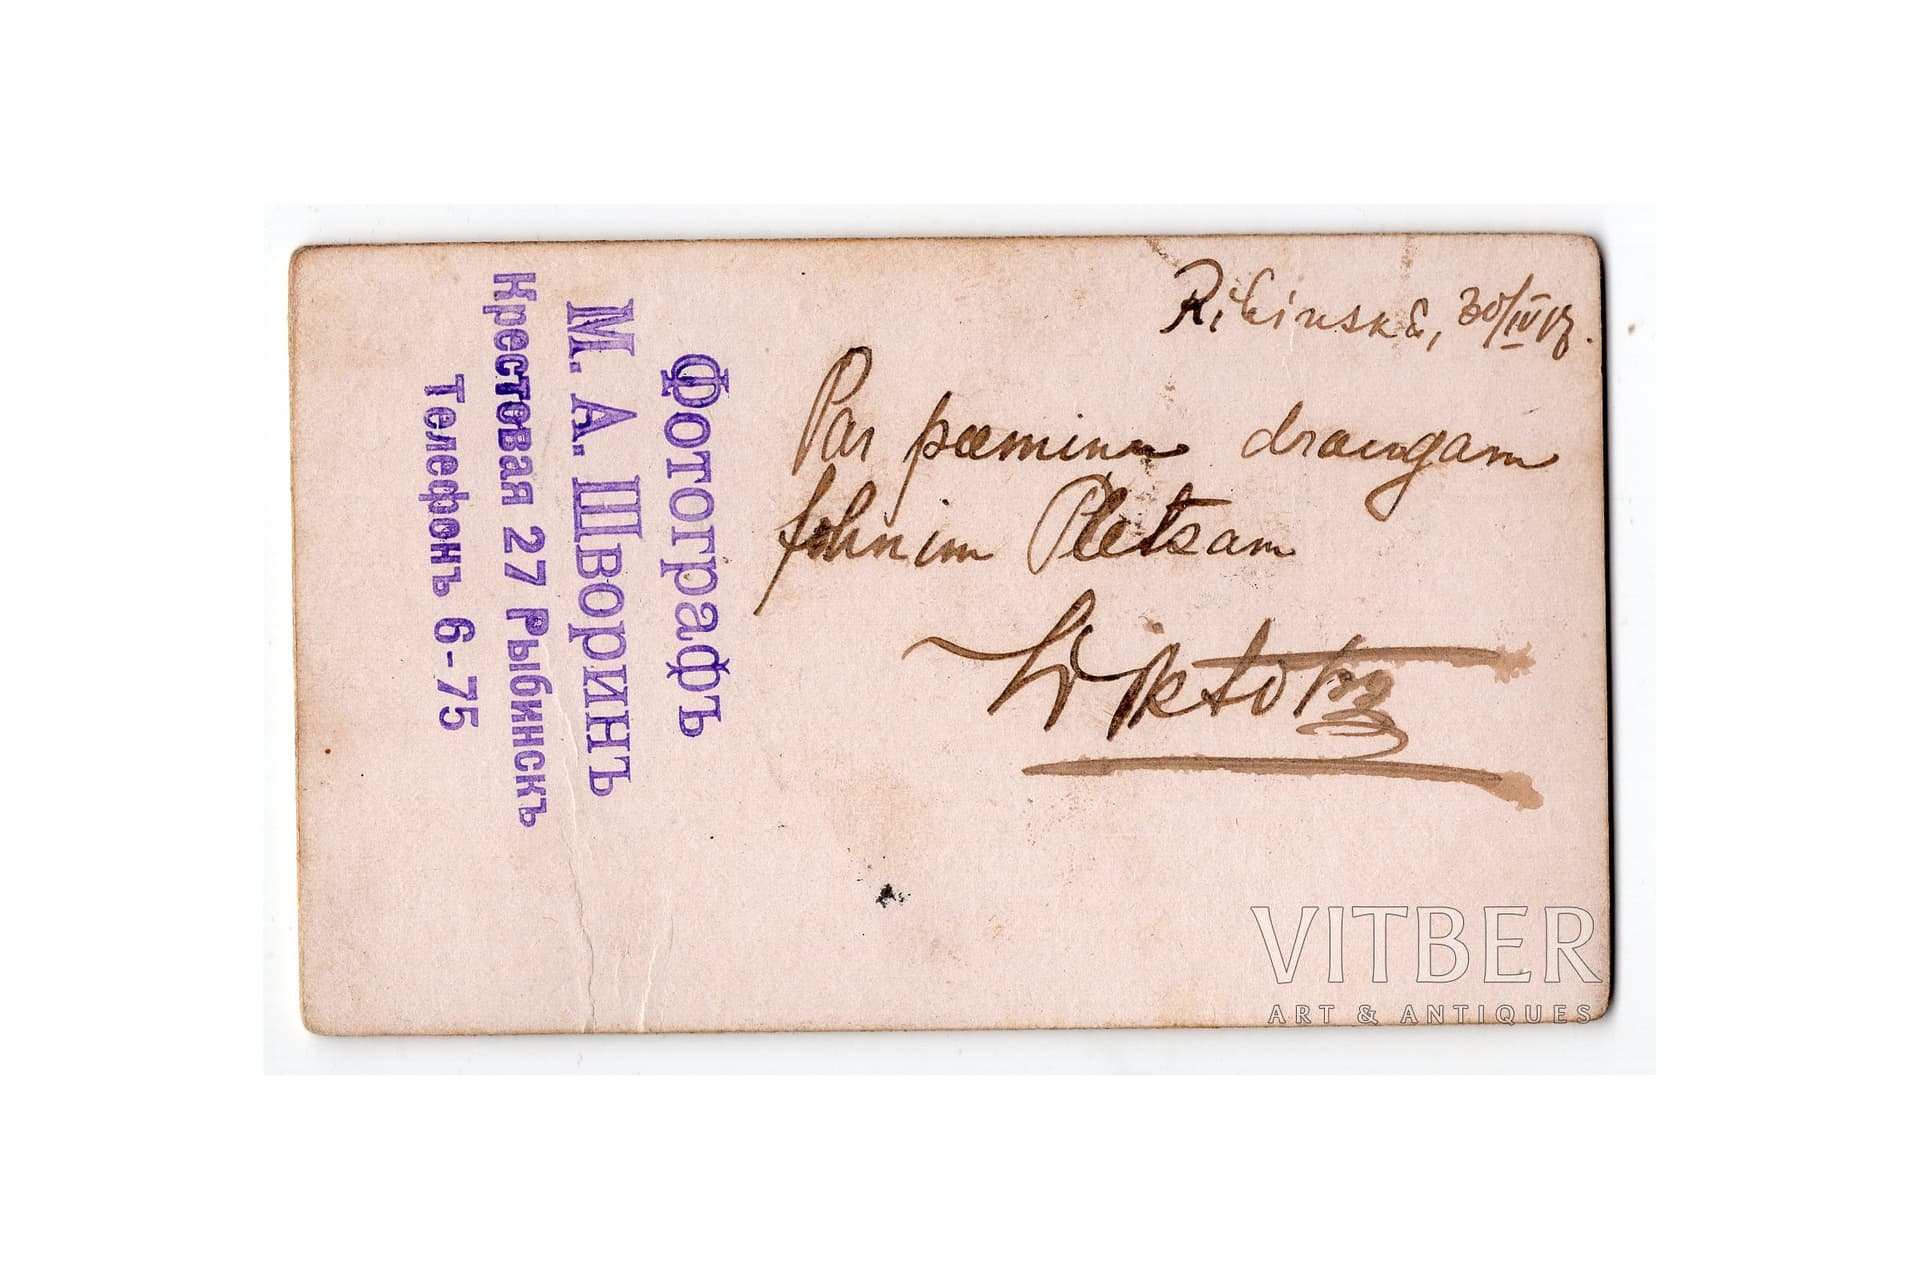 Фотографъ
М. А. Шворинъ
Крестовая 27 Рыбинскъ
Телефонъ 6-75
Ribinskā, 30/IV 17.
Par peemiņu draugam
Jahnim Pletsam
Wiktors
VITBER
ART & ANTIQUES